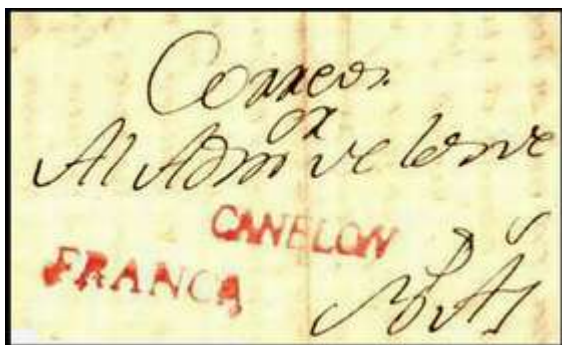 Correos
Al Admor de Cors de
CANELON
FRANCA